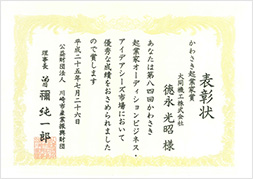 表彰状
かわさき起業家賞
大同機工株式会社
徳永 光昭 様
あなたは第八四回かわさき
起業家オーディションビジネス・
アイデアシーズ市場において
優秀な成績をおさめられました
ので賞します
平成二十五年七月二十六日
公益財団法人 川崎市産業振興財団
理事長 曽禰 純一郎